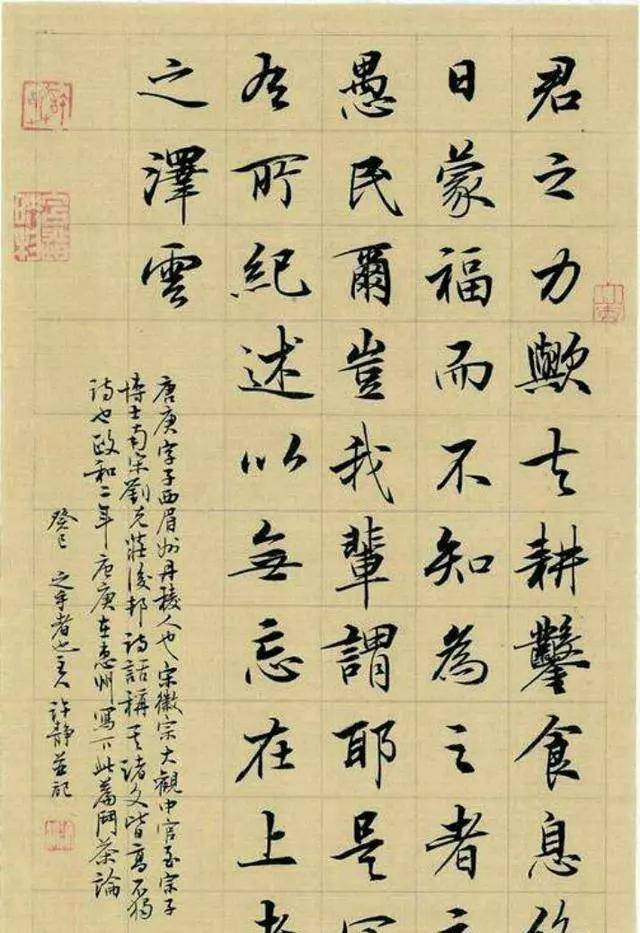 君之力歟夫耕鑿食息
日蒙福而不知為之者
愚民爾豈我輩謂耶是
有所紀述以無忘在上
之澤雲
唐庚字子西眉州丹稜人也宋徽宗大觀中官至宗子
博士南宋劉克莊後邨詩話稱其諸文皆高不獨
詩也政和二年唐庚在惠州寫下此篇鬥茶論
癸巳 之乎者也主人 許靜並記